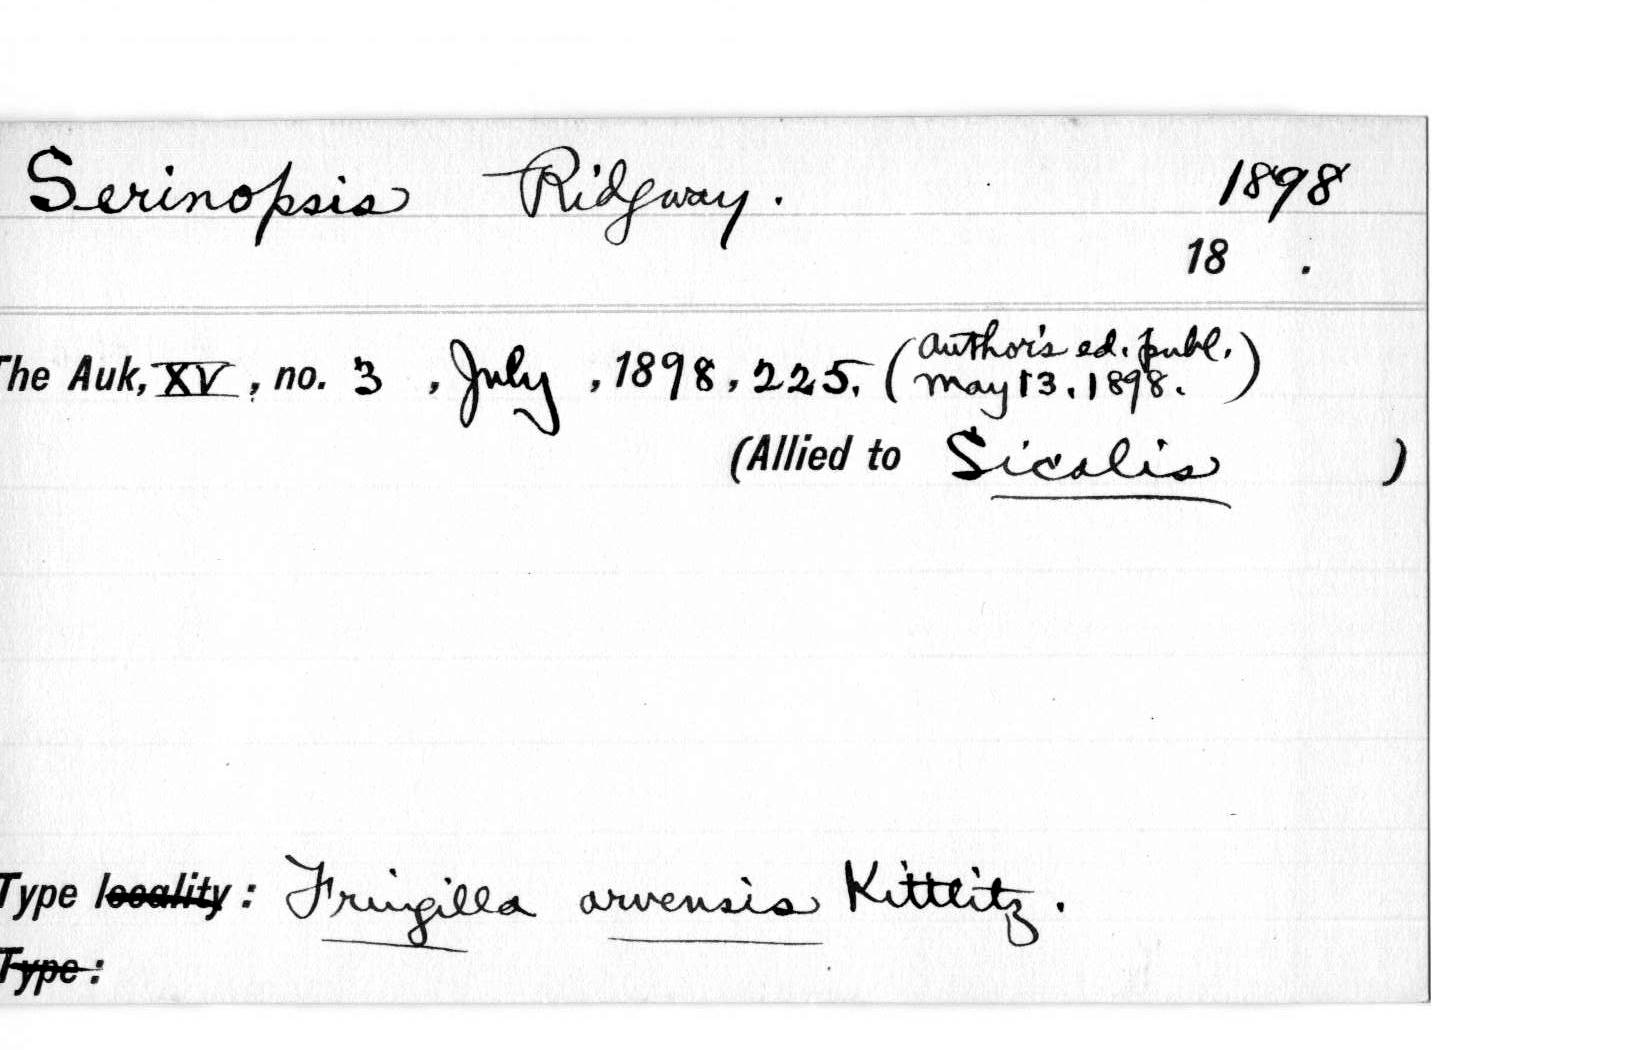 Serinopsis Ridgway. 1898
18 .
The Auk, XV, no. 3, July, 1898, 225, (author's ed. publ.
May 13, 1898.)
(Allied to Sicalis )
Type locality: Fringilla arvensis Kittlitz.
Type: